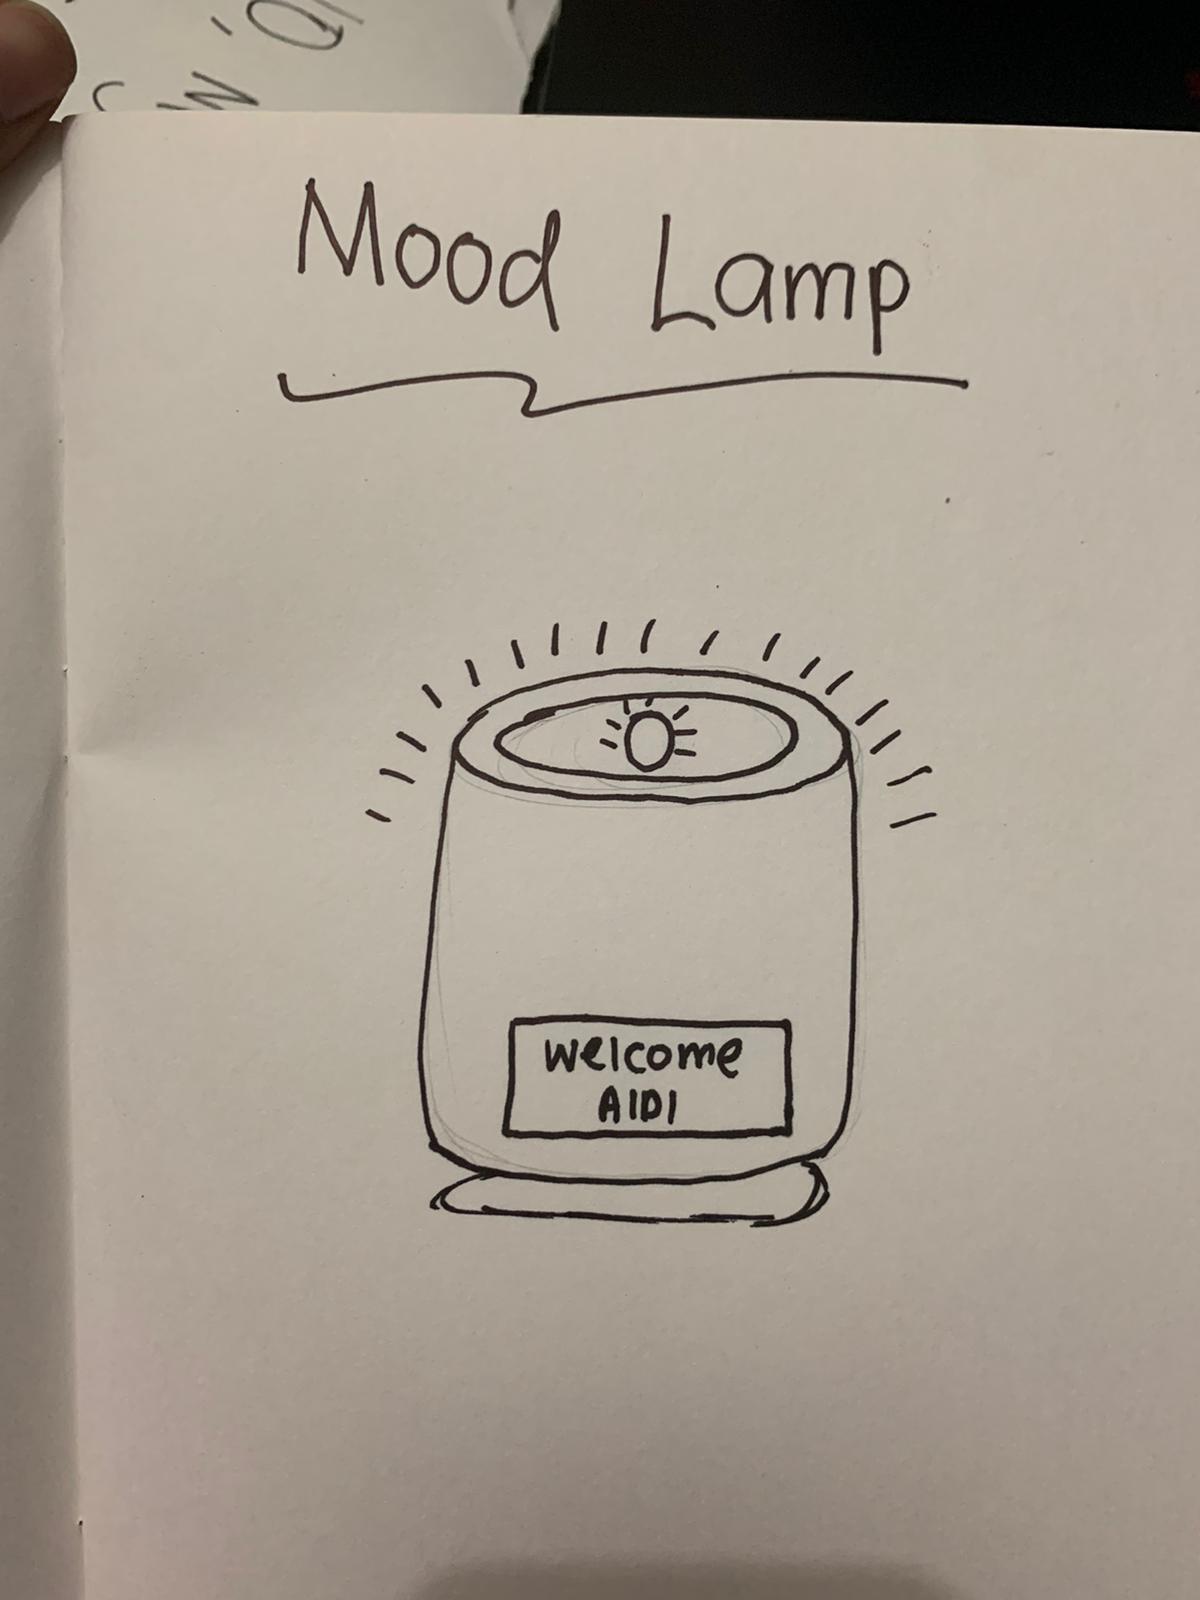 Mood Lamp
Welcome
AIDI